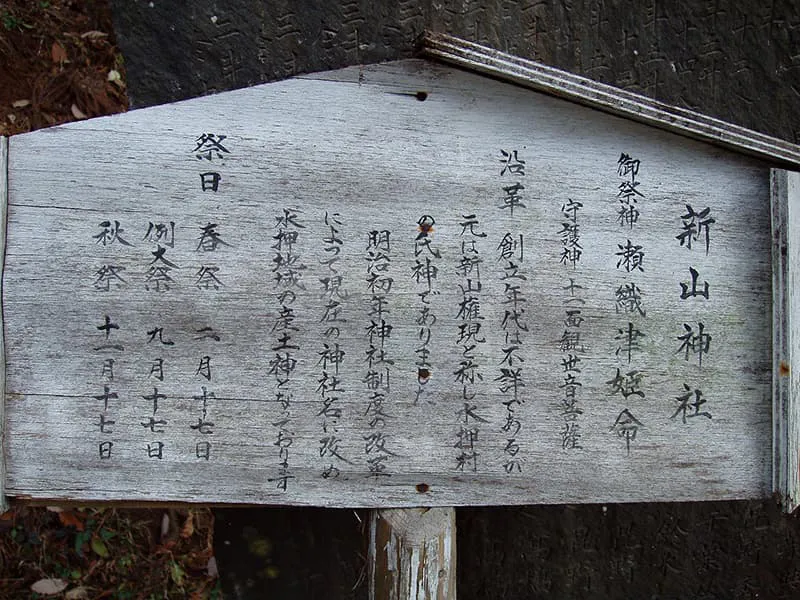 新山神社
御祭神 瀬織津姫命
守護神 十一面観世音菩薩
沿革 創立年代は不詳であるが
元は新山権現と称し水押村
の氏神でありました
明治初年神社制度の改革
によって現在の神社名に改め
水押地域の産土神となっております
祭日 春祭 二月十七日
例大祭 九月十七日
秋祭 十一月十七日